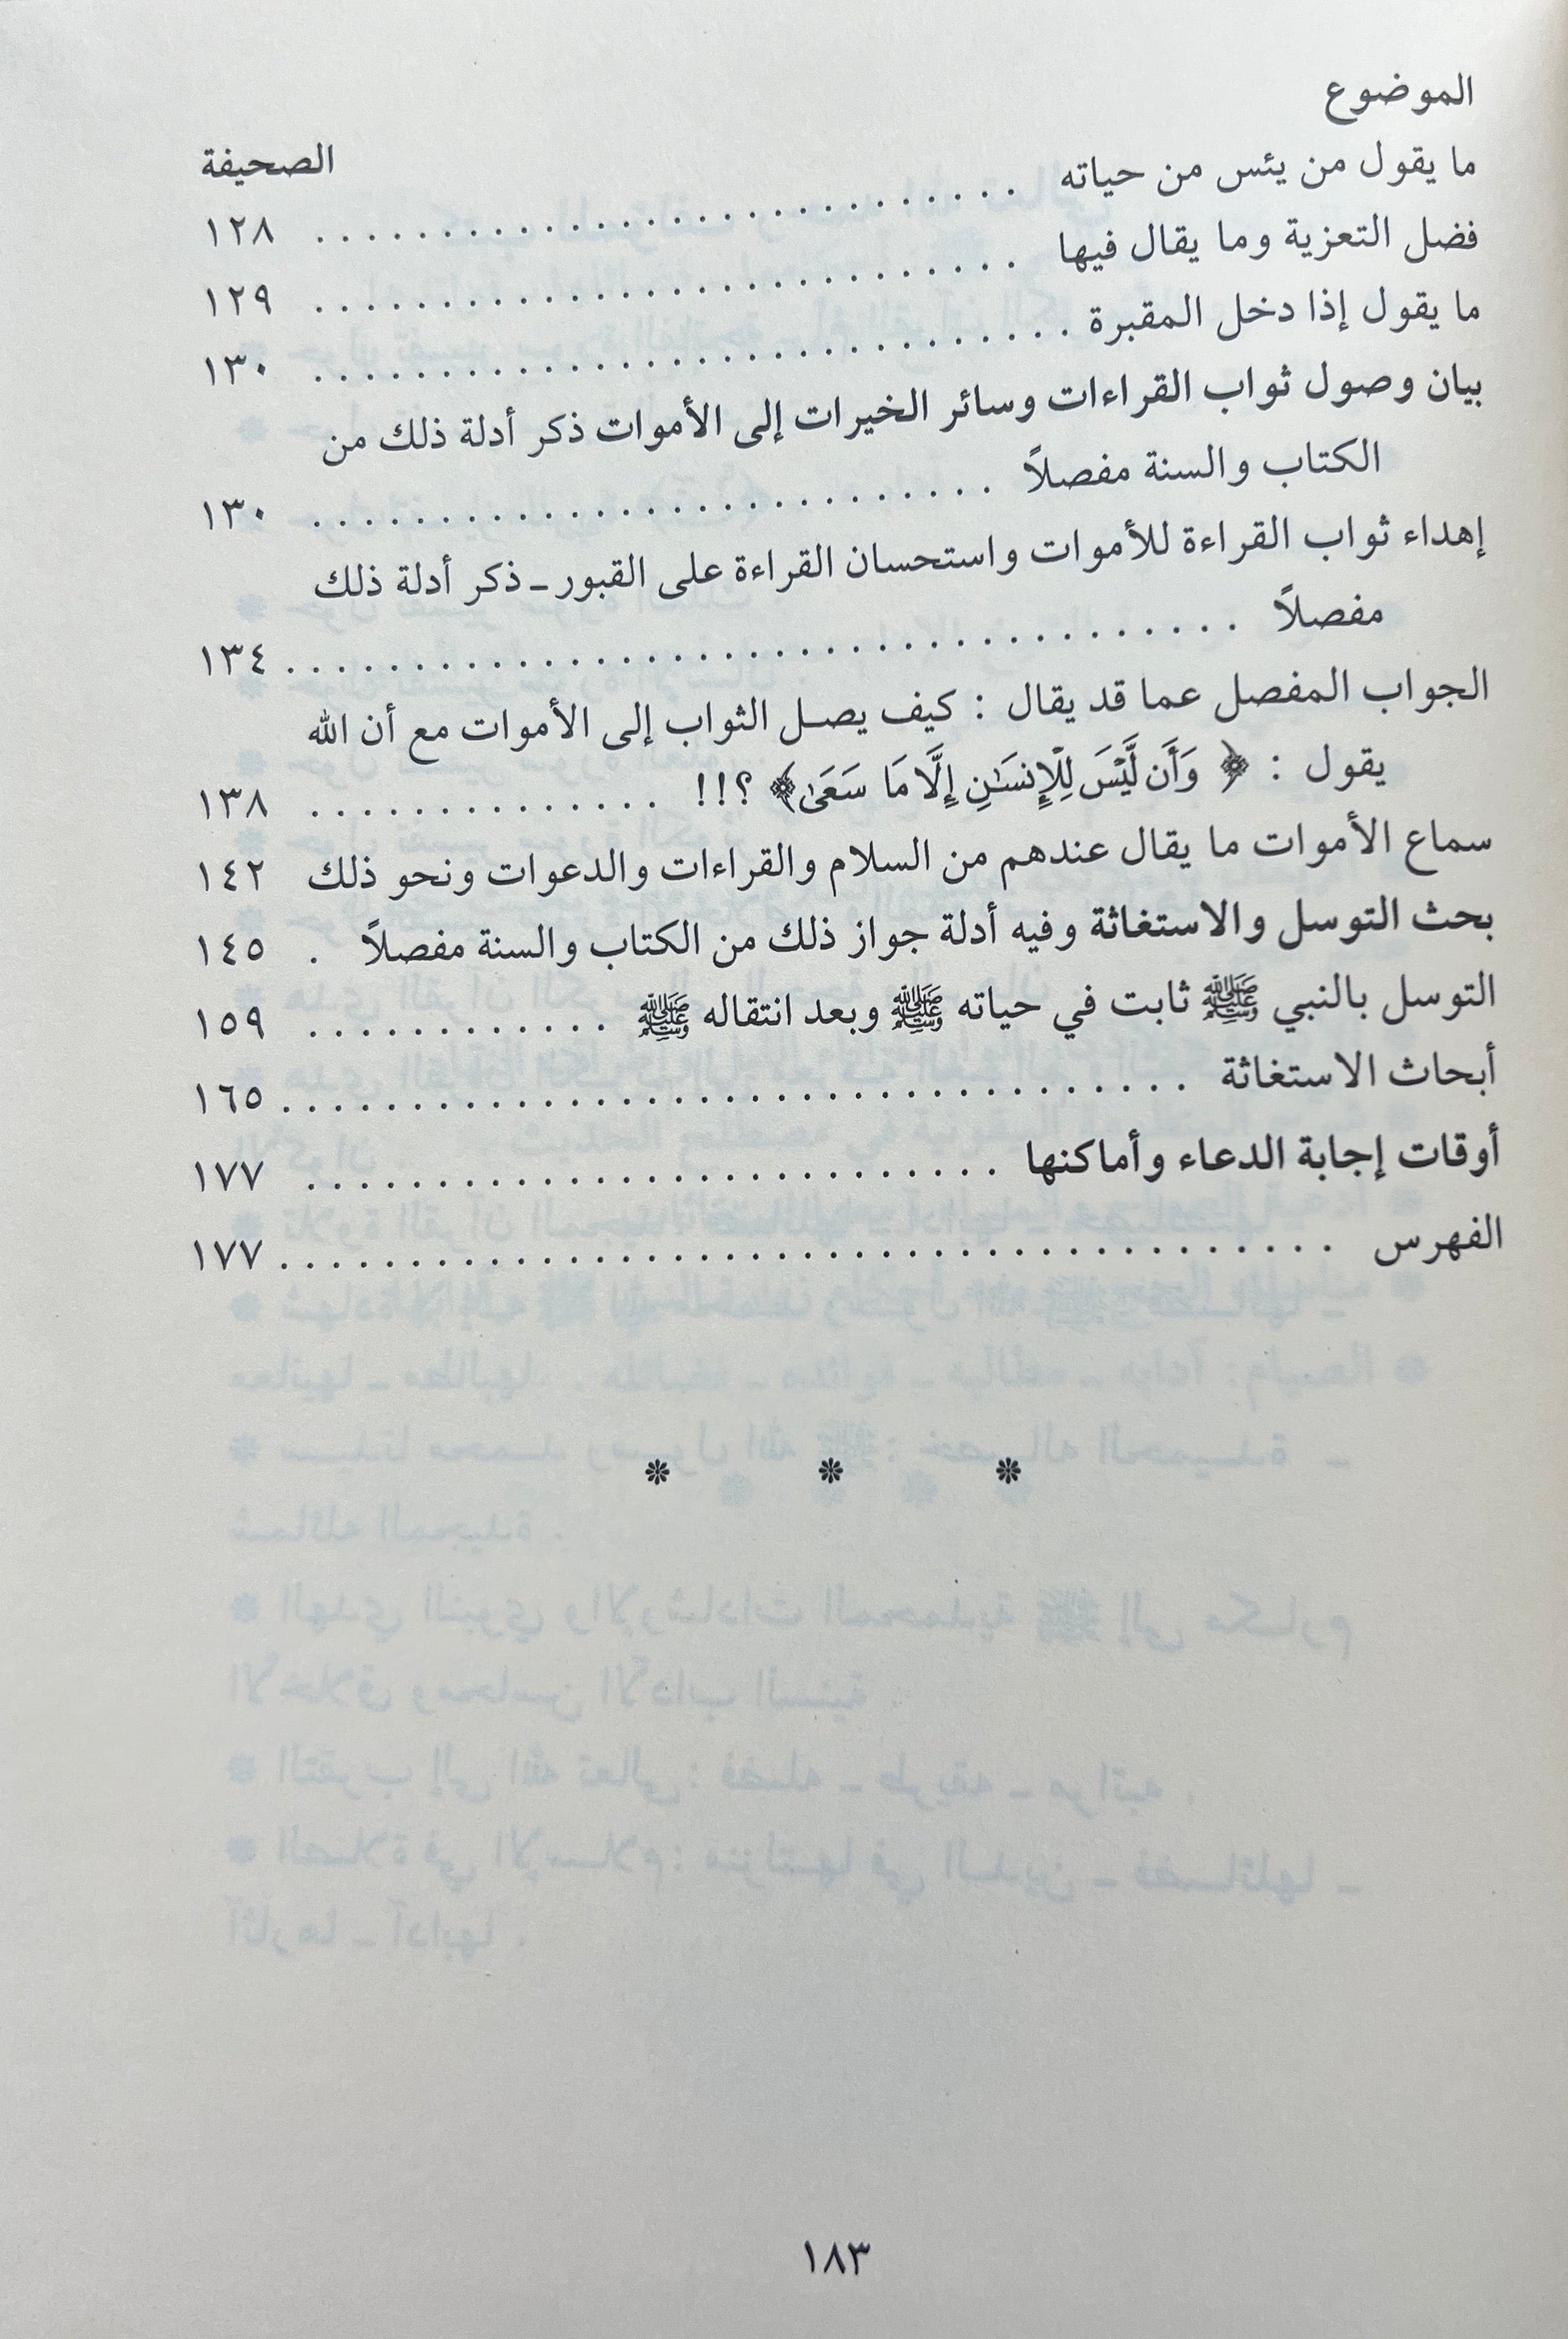 الموضوع الصحيفة
ما يقول من يئس من حياته . . . . . . . . . . . . . . . . . . . . . . . . . . . . ١٢٨
فضل التعزية وما يقال فيها . . . . . . . . . . . . . . . . . . . . . . . . . . . . ١٢٩
ما يقول إذا دخل المقبرة . . . . . . . . . . . . . . . . . . . . . . . . . . . . . . ١٣٠
بيان وصول ثواب القراءات وسائر الخيرات إلى الأموات ذكر أدلة ذلك من
الكتاب والسنة مفصلاً . . . . . . . . . . . . . . . . . . . . . . . . . . . ١٣٠
إهداء ثواب القراءة للأموات واستحسان القراءة على القبور ـ ذكر أدلة ذلك
مفصلاً . . . . . . . . . . . . . . . . . . . . . . . . . . . . . . . . . . . . . ١٣٤
الجواب المفصل عما قد يقال : كيف يصل الثواب إلى الأموات مع أن الله
يقول : ﴿ وَأَن لَّيْسَ لِلْإِنسَـٰنِ إِلَّا مَا سَعَىٰ ﴾ ؟!! . . . . . . . . . . . . . . ١٣٨
سماع الأموات ما يقال عندهم من السلام والقراءات والدعوات ونحو ذلك ١٤٢
بحث التوسل والاستغاثة وفيه أدلة جواز ذلك من الكتاب والسنة مفصلاً . ١٤٥
التوسل بالنبي ﷺ ثابت في حياته ﷺ وبعد انتقاله ﷺ . . . . . . . . . . . . ١٥٩
أبحاث الاستغاثة . . . . . . . . . . . . . . . . . . . . . . . . . . . . . . . . . . . ١٦٥
أوقات إجابة الدعاء وأماكنها . . . . . . . . . . . . . . . . . . . . . . . . . . . ١٧٧
الفهرس . . . . . . . . . . . . . . . . . . . . . . . . . . . . . . . . . . . . . . . . . ١٧٧
* * *
١٨٣